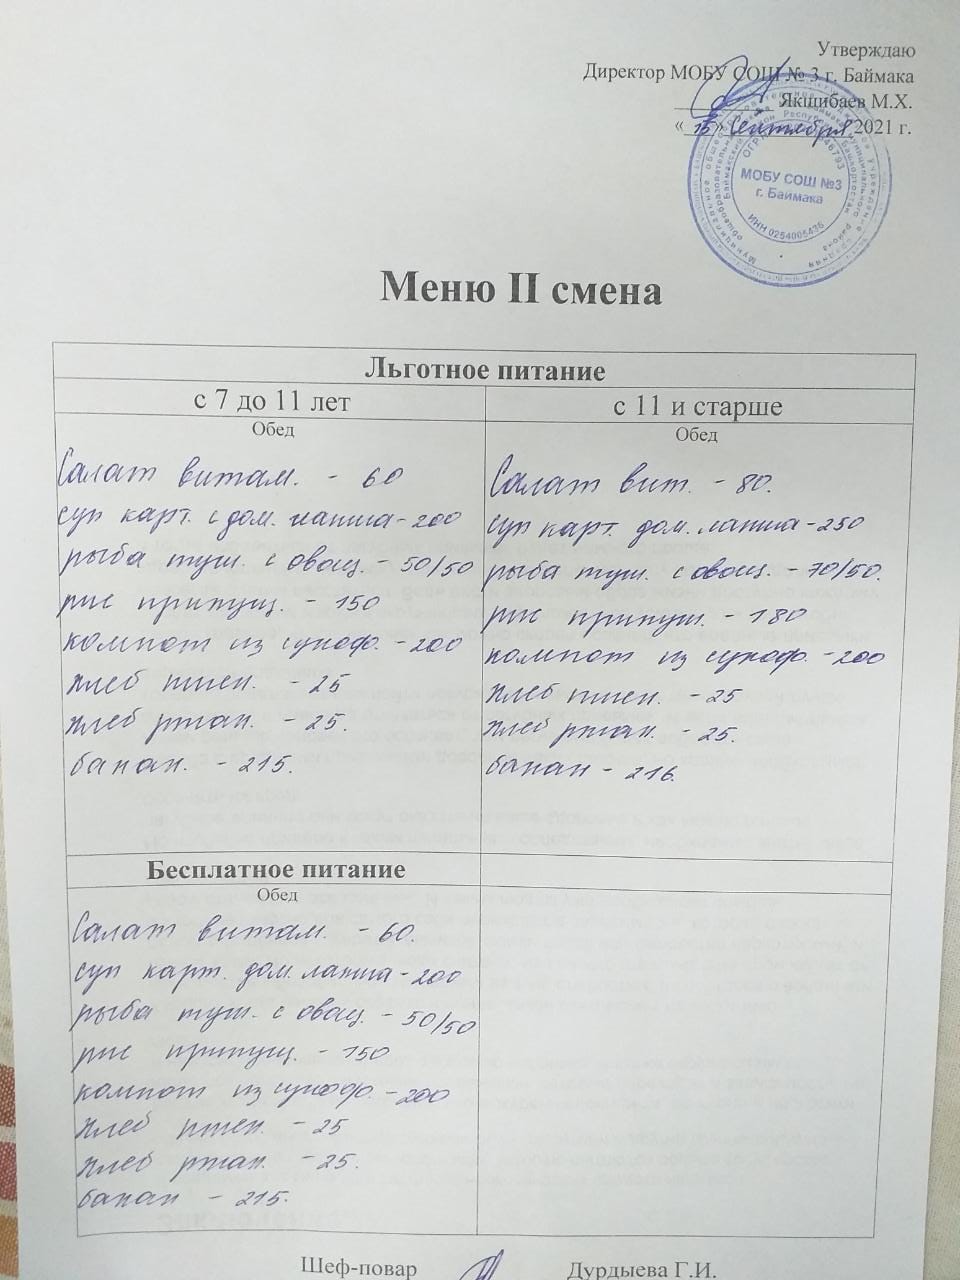 Утверждаю
Директор МОБУ СОШ № 3 г. Баймака
Якшибаев М.Х.
« 15 » Сентября 2021 г.
МОБУ СОШ №3
г. Баймака
ИНН 0254005436
Меню II смена
Льготное питание
с 7 до 11 лет
Обед
Салат витам. - 60
суп карт. с дом. лапша - 200
рыба туш. с овощ. - 50/50
рис припущ. - 150
компот из сухоф. - 200
хлеб пшен. - 25
хлеб ржан. - 25.
банан. - 215.
с 11 и старше
Обед
Салат вит. - 80.
суп карт. дом. лапша - 250
рыба туш. с овощ. - 70/50.
рис припущ. - 180
компот из сухоф. - 200
хлеб пшен. - 25
хлеб ржан. - 25.
банан - 216.
Бесплатное питание
Обед
Салат витам. - 60.
суп карт. дом. лапша - 200
рыба туш. с овощ. - 50/50
рис припущ. - 150
компот из сухоф. - 200
хлеб пшен. - 25
хлеб ржан. - 25.
банан - 215.
Шеф-повар Дурдыева Г.И.